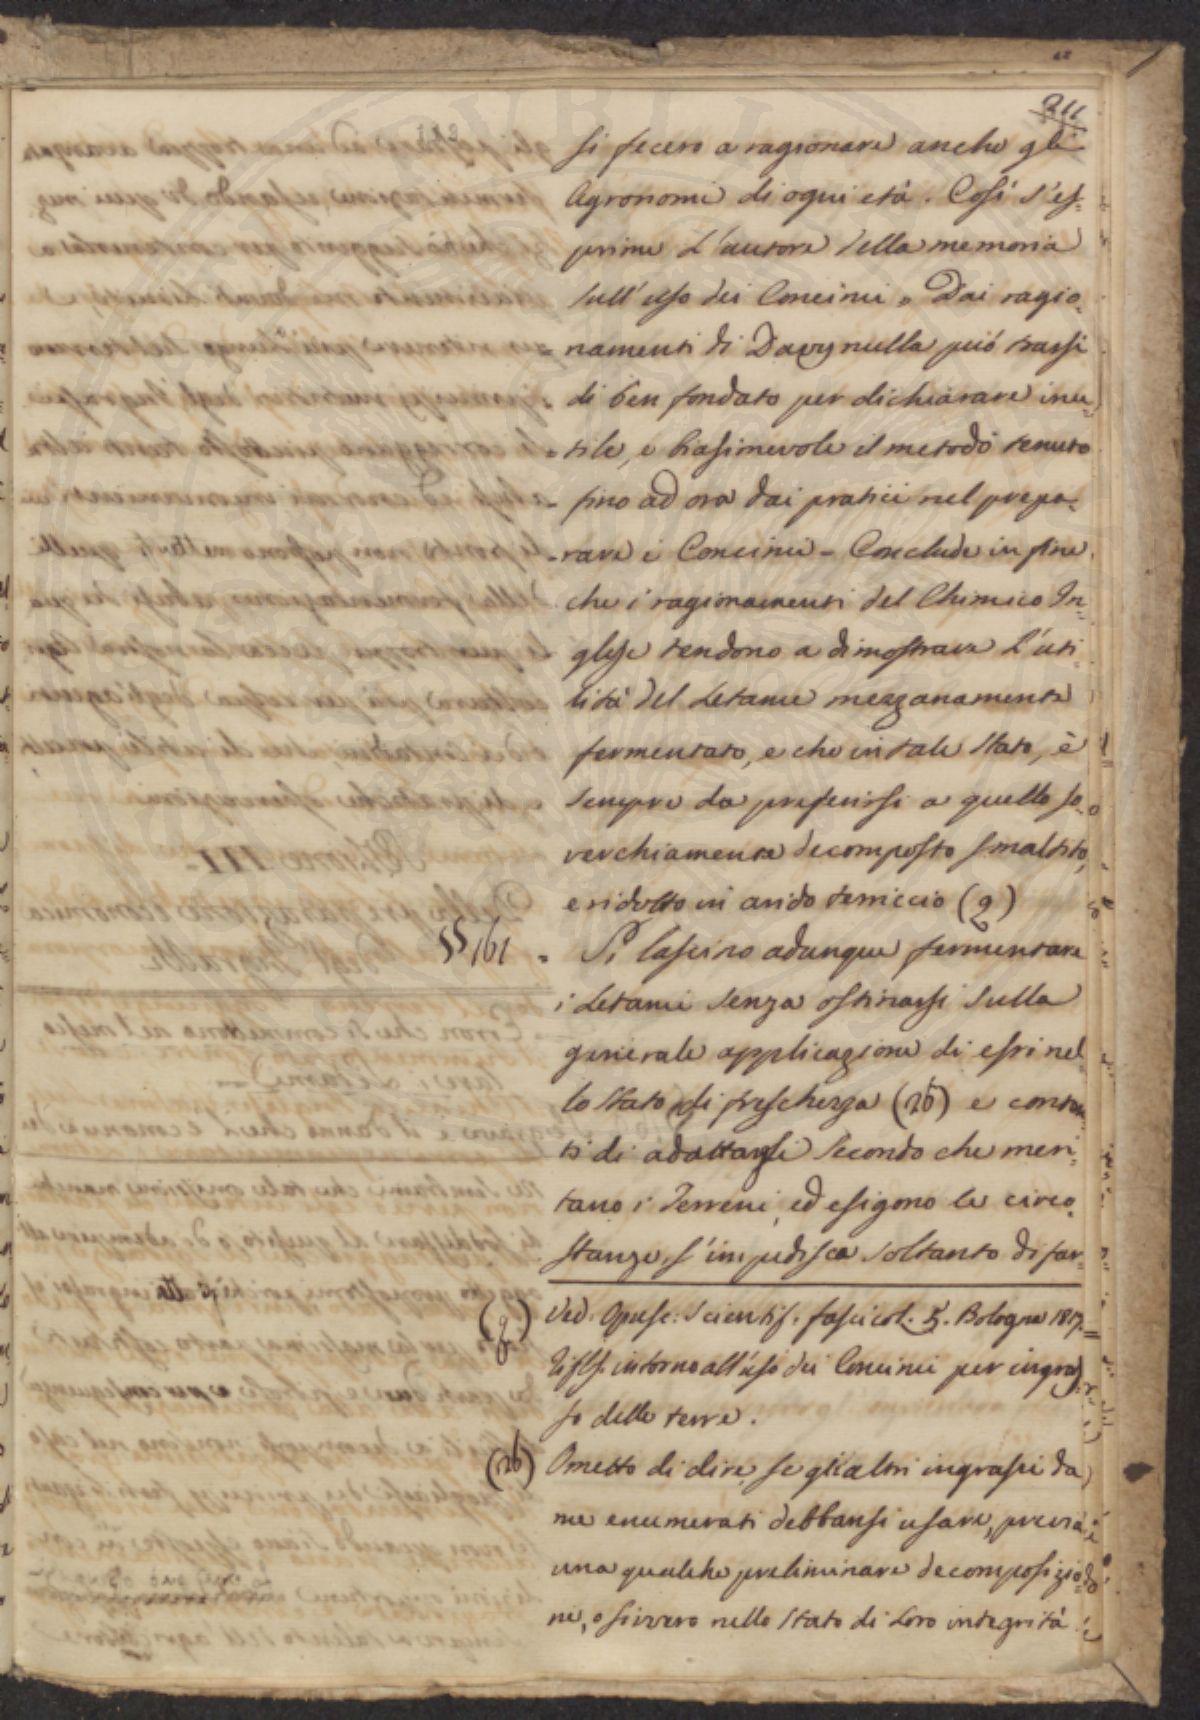 211
si fecero a ragionare anche gli
Agronomi di ogni età. Così s'es=
prime L'autore della memoria
sull'uso dei Concimi „ Dai ragio=
= namenti di Davy nulla può trarsi
= di ben fondato per dichiarare inu=
= tile, e biasimevole il metodo tenuto
= fino ad ora dai pratici nel prepa=
= rare i Concimi = Conclude in fine
che i ragionamenti del Chimico In=
glese tendono a dimostrare L'uti=
lità del Letame mezzanamente
fermentato, e che in tale stato, è
sempre da preferirsi a quello so=
verchiamente decomposto smaltito,
e ridotto in arido terriccio (q)
§§ 161 = Si lascino adunque fermentare
i Letami senza ostinarsi sulla
generale applicazione di essi nel=
lo stato di freschezza (2b) e conten=
ti di adattarsi secondo che meri=
tano i Terreni, ed esigono le circo=
stanze, s'impedisca soltanto di far=
(q) Ved. Opusc: Scientif. fascicol. 5. Bologna 1817=
intorno all'uso dei Concimi per ingras=
so delle terre.
(2b) Ometto di dire, se gli altri ingrassi da
me enumerati debbansi usare, previa
una qualche preliminare decomposizio=
ne, o sivvero nello stato di Loro integrità